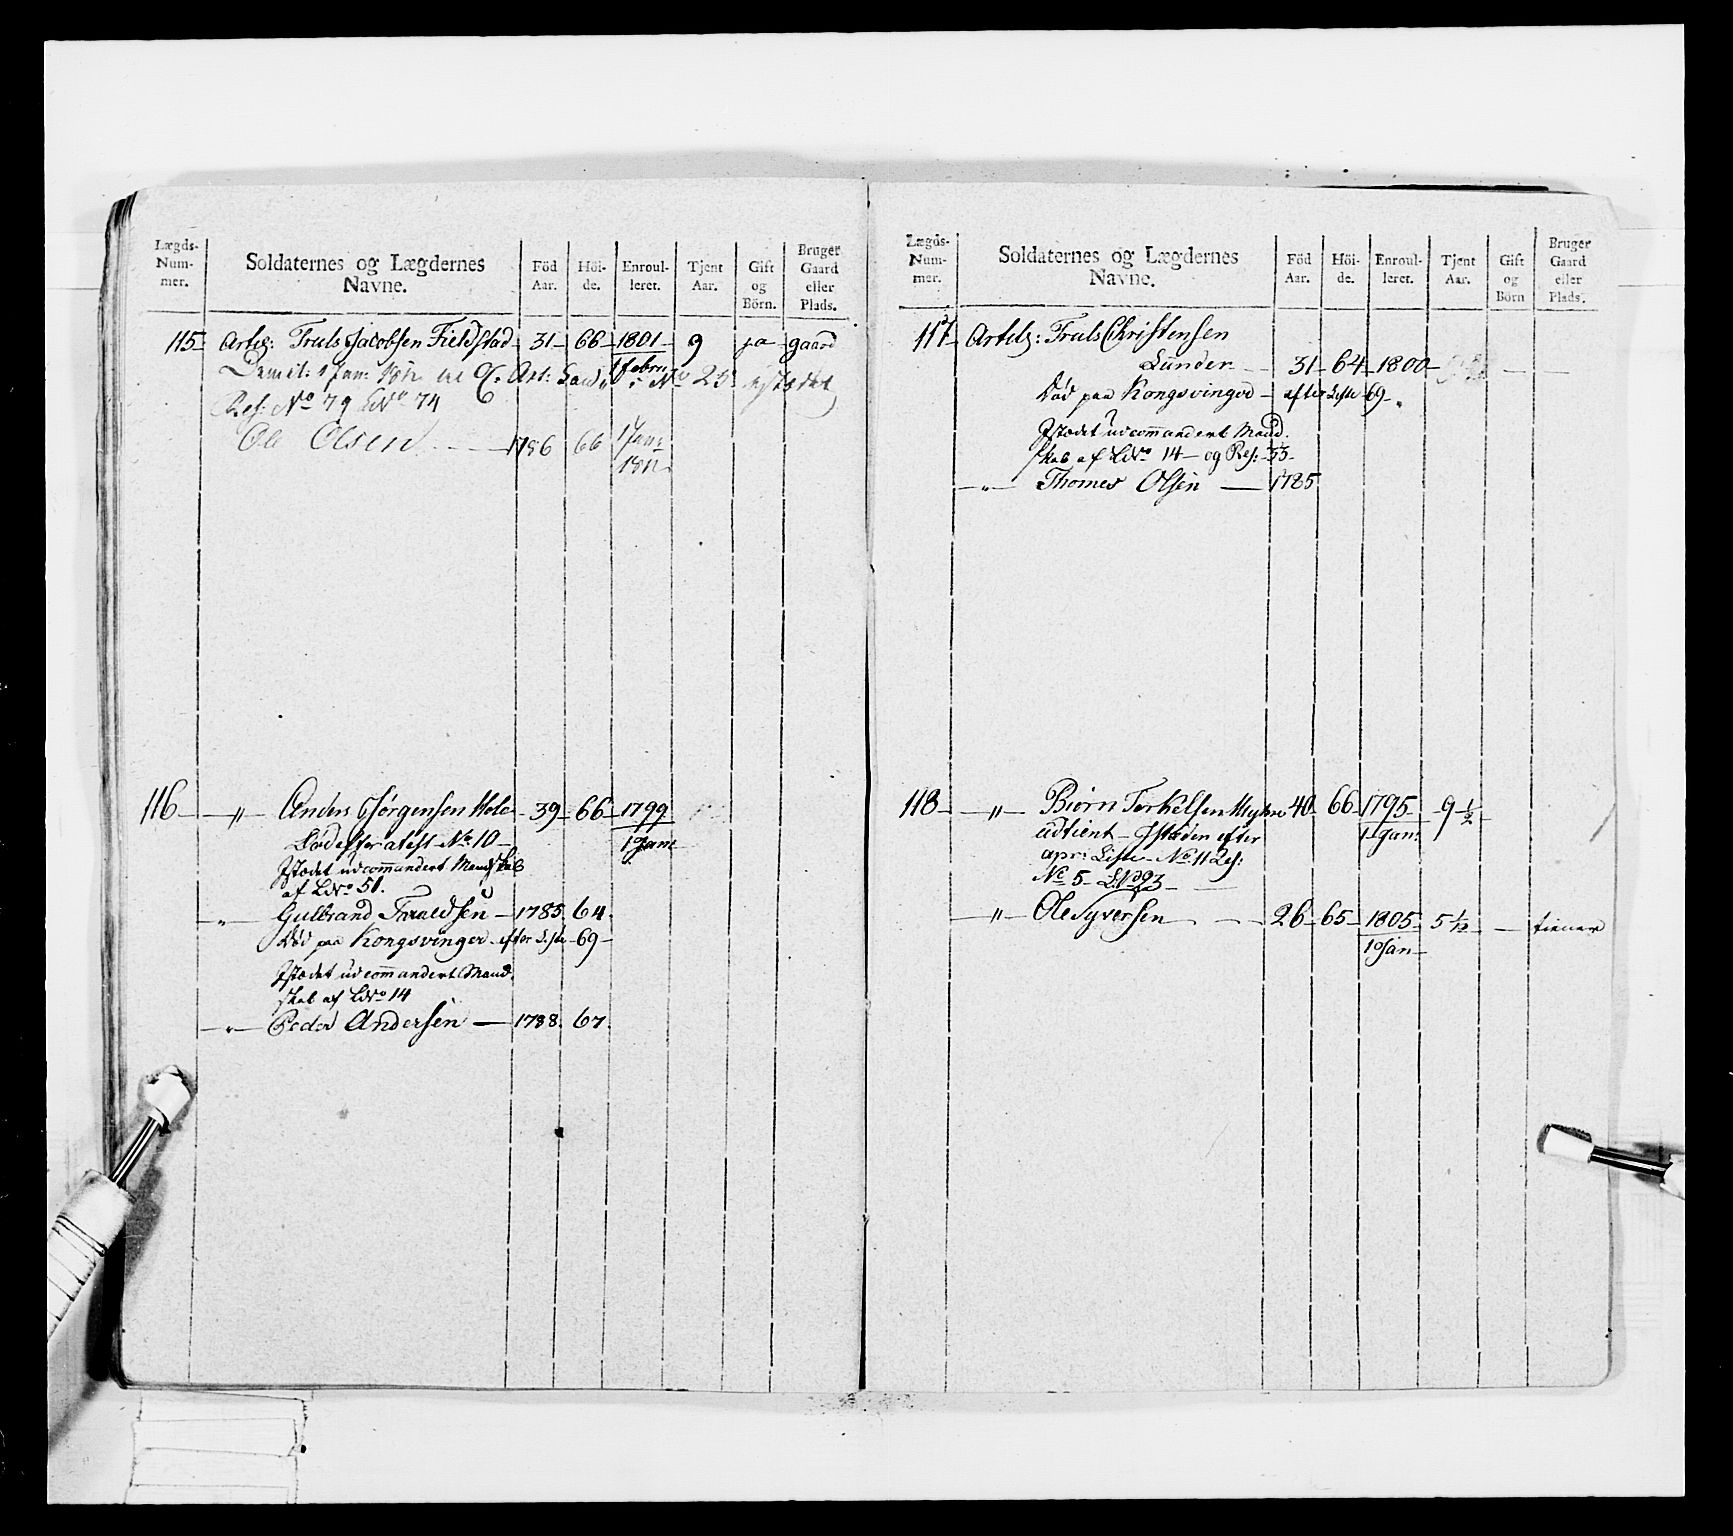 Lægds-Num-mer. Soldaternes og Lægdernes Navne. Föd Aar. Höi-de. Enroul-leret. Tjent Aar. Gift og Börn. Bruger Gaard eller Plads.
115 Artig: Truls Jacobsen Fieldstad 31 66 1801 9 ja gaard
1 Febru:
Demit: 1 Jan: 1812 No 25 istædet
Res: No 79 LNo 74
Ole Olsen 1786 66 1 Janr: 1812
116 " Anders Jørgensen Hole 39 66 1799
1 Jan:
Død efter atest No 10
Istædet udcommandert Mandskab
af LNo 51.
" Gulbrand Taraldsen 1785 64
Død paa Kongsvinger efter Liste 69
Istædet udcommandert Mand-
skab af LNo 14
" Peder Andersen 1788 67
Lægds-Num-mer. Soldaternes og Lægdernes Navne. Föd Aar. Höi-de. Enroul-leret. Tjent Aar. Gift og Börn Bruger Gaard eller Plads.
117 Artils: Truls Christensen
Lunden 31 64 1800
Død paa Kongsvinger efter Liste 69
Istædet udcommandert Mand-
skab af LNo 14 og Res: 33
" Thomes Olsen 1785
118 " Biørn Torkelsen 40 66 1795 9 1/2
1 Jan:
udtient Istæden efter
apr: Liste No 11 Res:
No 5 LNo 93
" Ole Syversen 26 65 1805 5 1/12 tiener
1 Jan